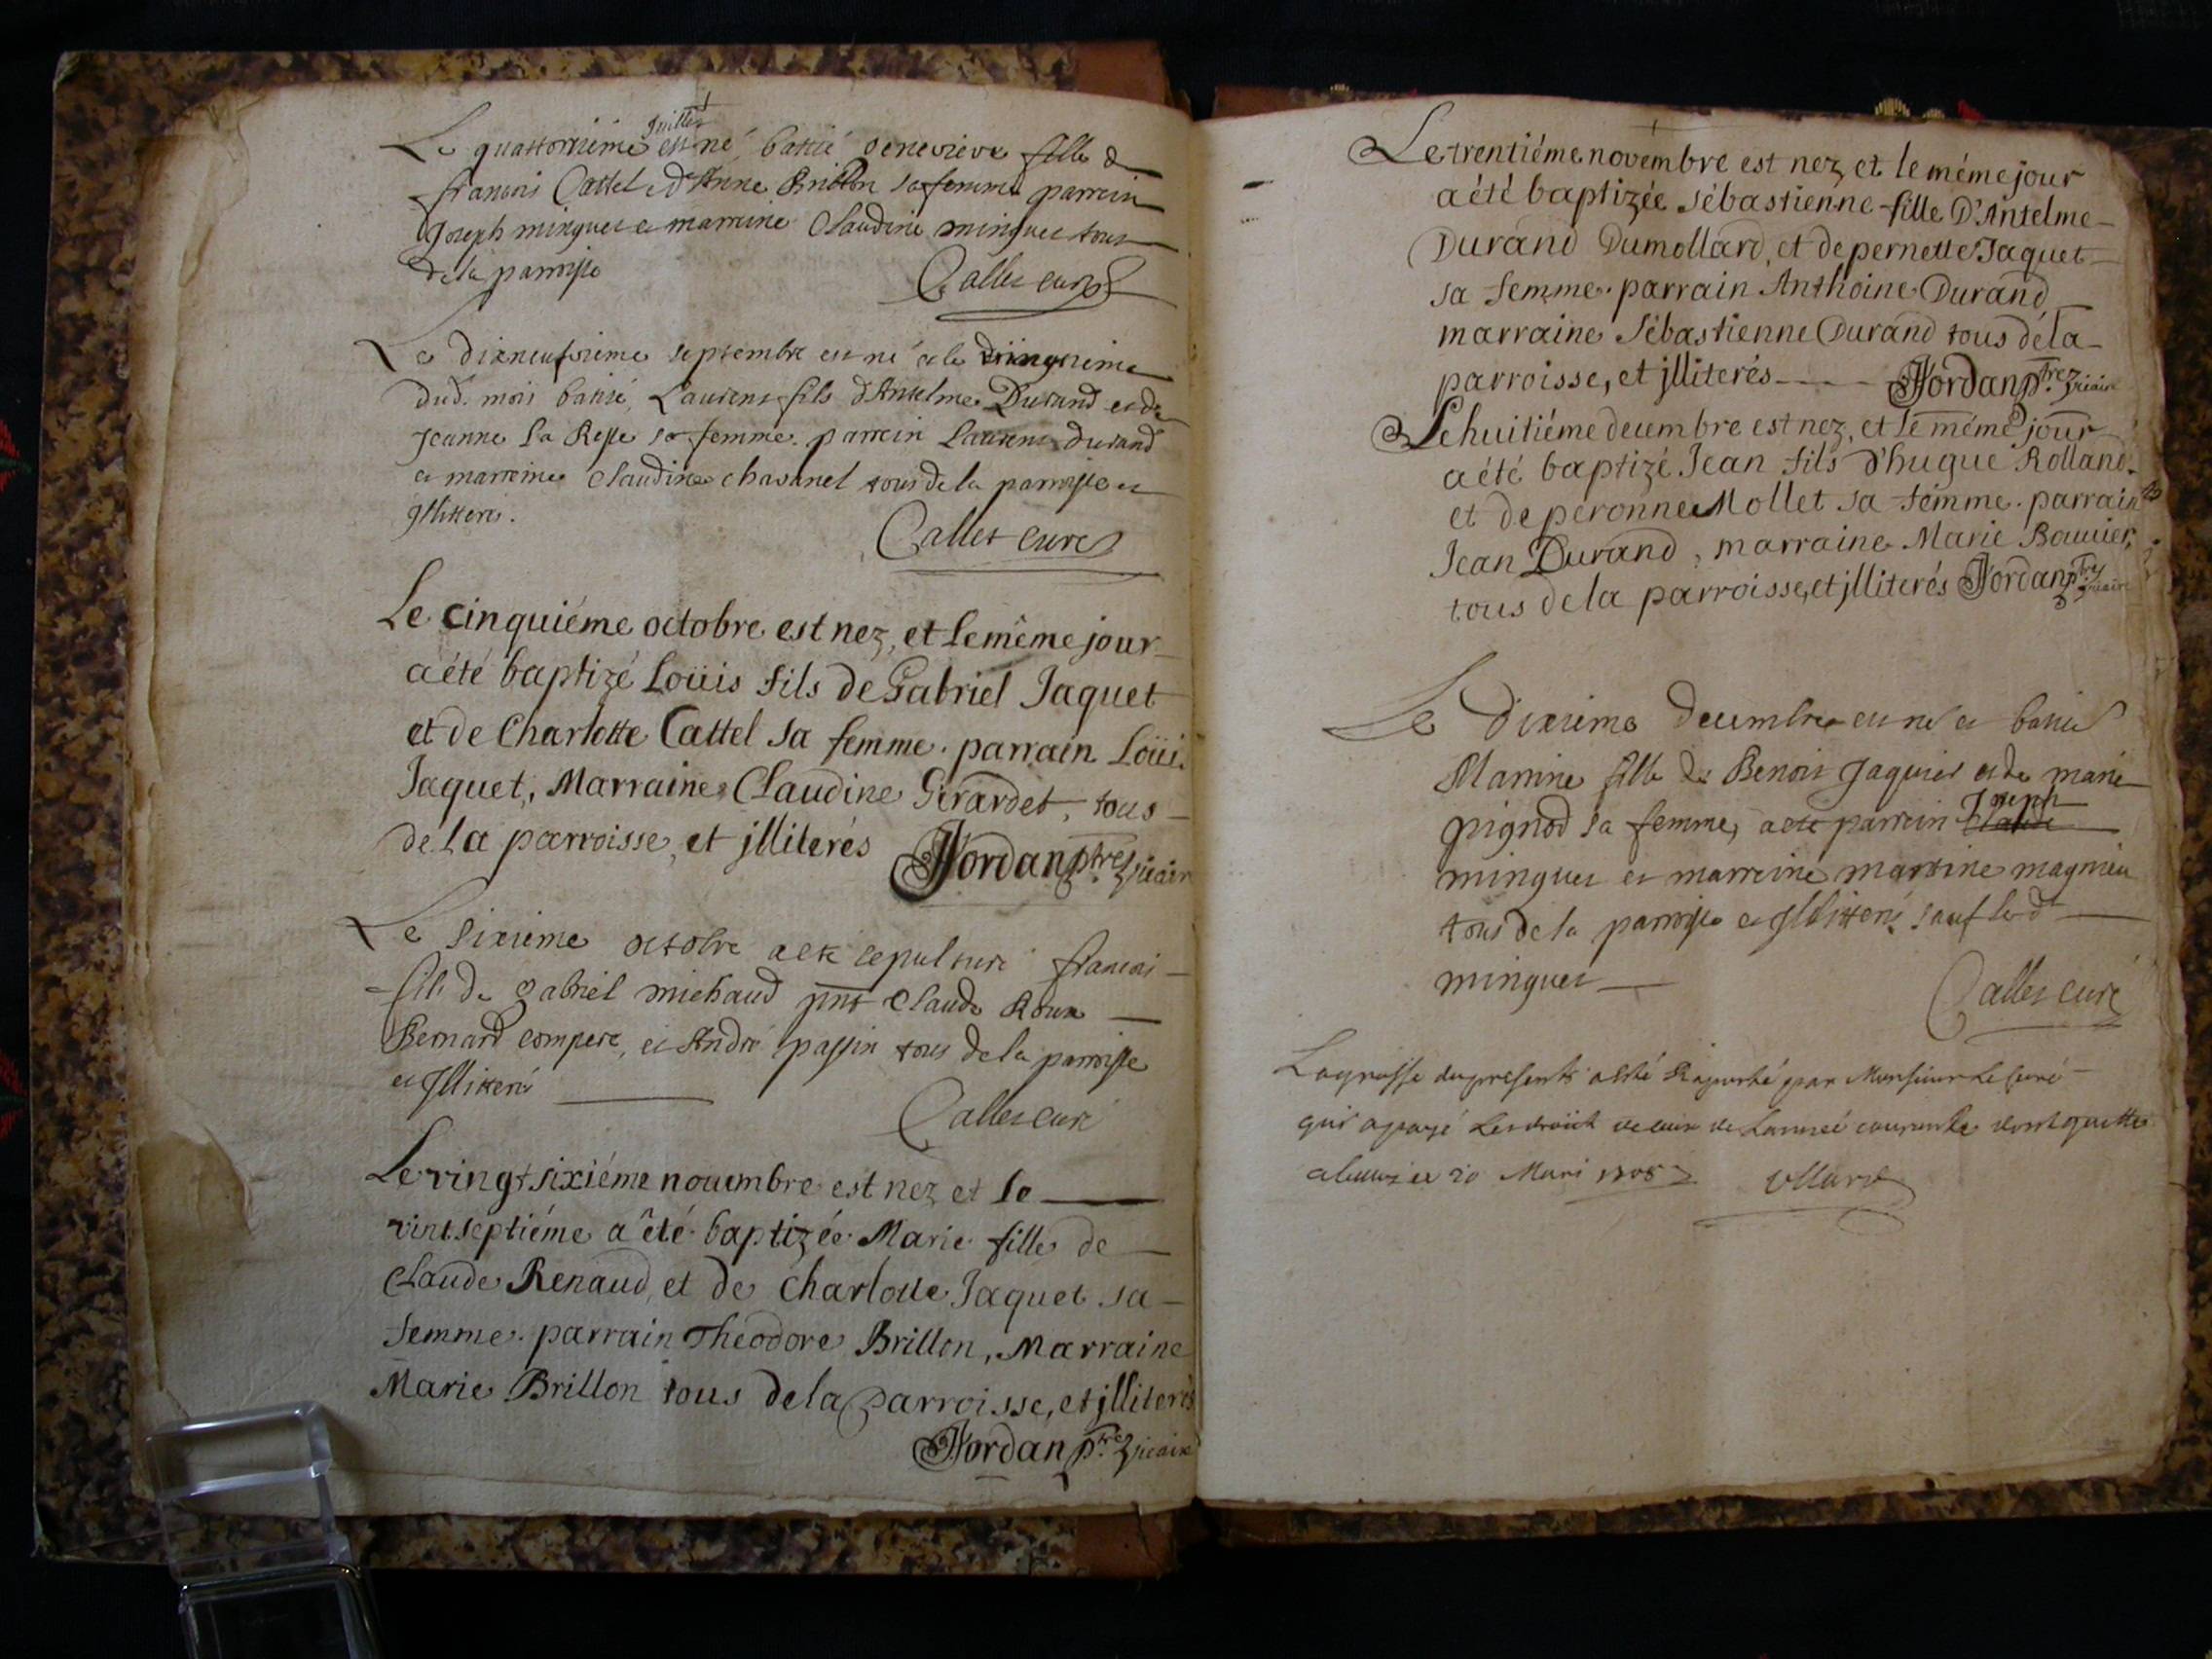 Juillet
Le quattorzieme est né batisé Genevieve fille de
francois Cattel et d'Anne Brillon sa femme parrein
Joseph minguet et marreine Claudine minguet tous
de la parroisse Callet curé
Le dixneufvieme septembre est né et le vingtieme
dud. mois batisé, Laurent fils d'Antelme Durand et de
Jeanne la Resse sa femme. parrein Laurent durand
et marreine Claudine chavanel tous de la parroisse et
jllitteres. Callet curé
Le cinquiéme octobre est nez, et le même jour
a été baptizé Loüis fils de Gabriel Jaquet
et de Charlotte Cattel sa femme. parrain Loüis
Jaquet, Marraine Claudine Girardet, tous
de la parroisse, et jlliterés Jordan ptre vicaire
Le sixieme octobre a ete sepulturé francois
fils de gabriel michaud pnts Claude Roux
Bernard compere, et André passin tous de la parroisse
et Jllitterés Callet curé
Le vingt sixiéme novembre est nez et le
vint septiéme a été baptizée Marie fille de
Claude Renaud, et de Charlotte Jaquet sa
femme. parrain Theodore Brillon, Marraine
Marie Brillon tous de la parroisse, et jlliterés
Jordan ptre vicaire
Le trentiéme novembre est nez, et le méme jour
a été baptizée Sébastienne fille D'Antelme
Durand Dumollard, et de pernette Jaquet
sa femme. parrain Anthoine Durand
marraine Sébastienne Durand tous de la
parroisse, et jlliterés Jordan ptre vicaire
Le huitiéme decembre est nez, et le méme jour
a été baptizé Jean fils d'hugue Rolland
et de peronne Mollet sa femme. parrain
Jean Durand, marraine Marie Bouvier,
tous de la parroisse, et jlliterés Jordan ptre vicaire
Le dixieme decembre est né et batisé
Marrine fille de Benoit Jaquier et de marie
pignod sa femme, a ete parrein Claude Joseph
minguet et marreine marrine magnieu
tous de la parroisse et Jllitterés sauf led
minguet
Callet curé
La grosse du presents a esté Raporté par Monsieur Le curé
qui a payé Les droict de ceux de Lannée courante dont quitte
a ce 20 Mars 1708